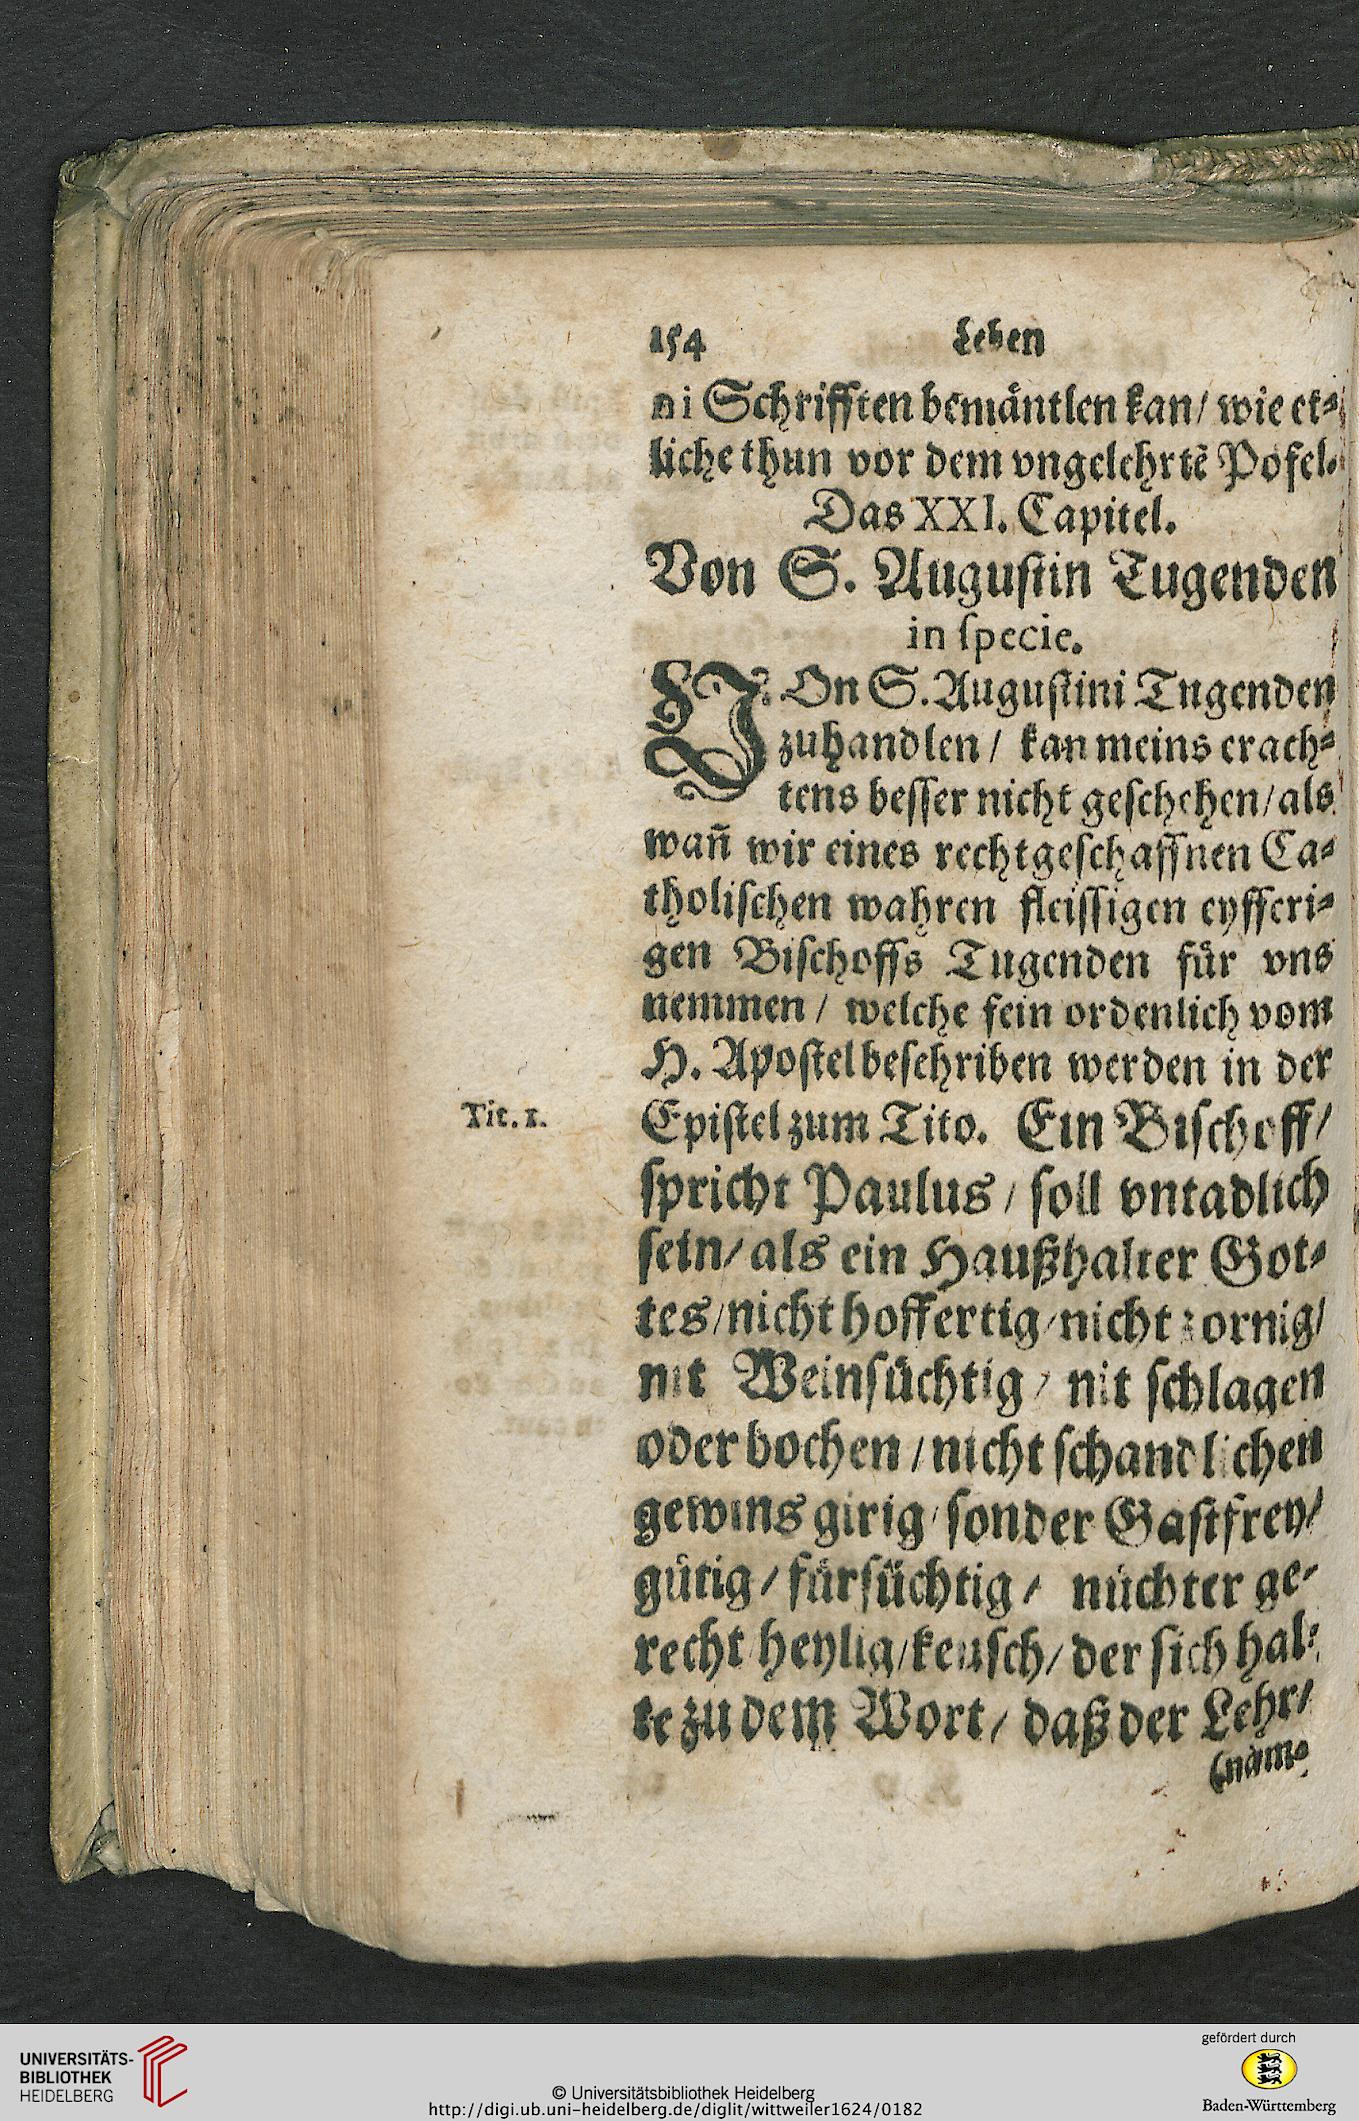 154 Leben
ni Schrifften bemåntlen kan/ wie et⸗
liche thun vor dem vngelehrtẽ Pofel.
Das XXI. Capitel.
Von S. Augustin Tugenden
in ſpecie.
VOn S. Augustini Tngenden
zuhandlen / kan meins erach⸗
tens beſſer nicht geſchehen / als
wañ wir eines rechtgeſchaffnen Ca⸗
tholiſchen wahren fleiſſigen eyfferi⸗
gen Biſchoffs Tugenden fůr vns
nemmen / welche fein ordenlich vom
H. Apoſtel beſchriben werden in der
Tit. 1. Epiſtel zum Tito. Ein Biſchoff/
ſpricht Paulus / ſoll vntadlich
ſein / als ein Haußhalter Got⸗
tes / nicht hoffertig / nicht zornig/
nit Weinſüchtig / nit ſchlagen
oder bochen / nicht ſchandlichen
gewins girig / ſonder Gaſtfrey/
gůtig / fůrſüchtig / nůchter ge⸗
recht heylig / keuſch / der ſich hal⸗
te zu dem Wort / daß der Lehr/
(nåm⸗
UNIVERSITÄTS-
BIBLIOTHEK
HEIDELBERG
© Universitätsbibliothek Heidelberg
http://digi.ub.uni-heidelberg.de/diglit/wittweiler1624/0182
gefördert durch
Baden-Württemberg